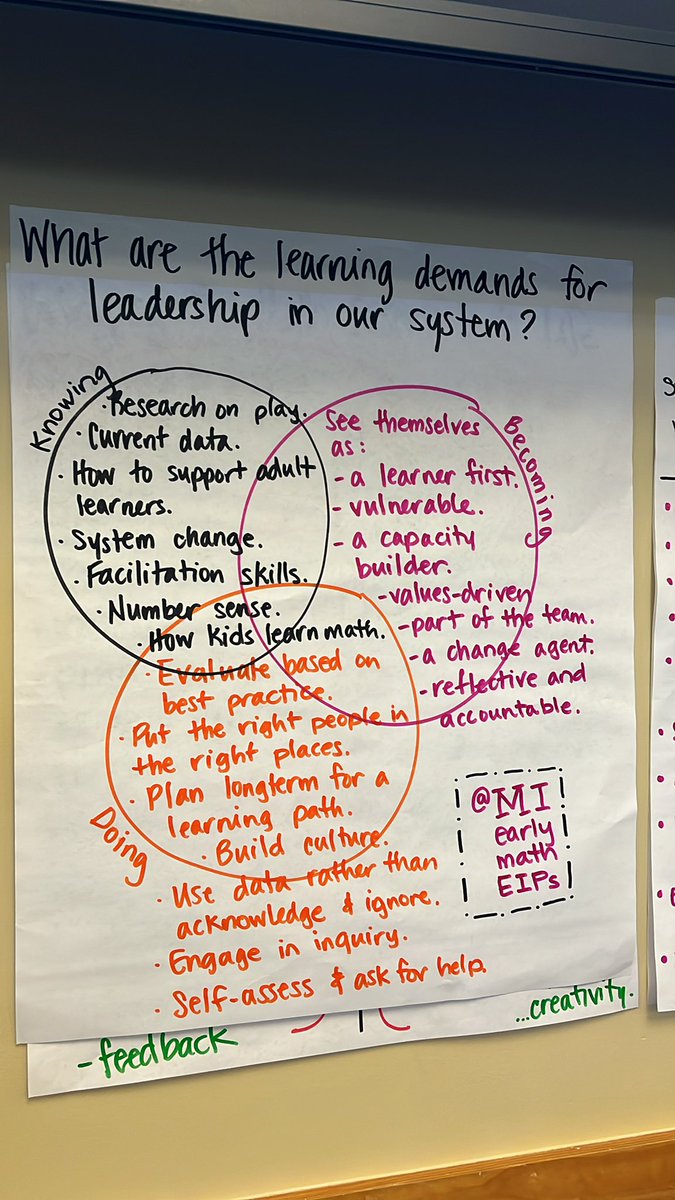 What are the learning demands for
leadership in our system?
Knowing
· Research on play.
· Current data.
· How to support adult
learners.
· System change.
· Facilitation skills.
· Number sense.
· How kids learn math.
Becoming
See themselves
as:
- a learner first.
- vulnerable.
- a capacity
builder.
- values-driven
- part of the team.
- a change agent.
- reflective and
accountable.
Doing
· Evaluate based on
best practice.
· Put the right people in
the right places.
· Plan longterm for a
learning path.
· Build culture.
· Use data rather than
acknowledge & ignore.
· Engage in inquiry.
· Self-assess & ask for help.
@MI
early
math
EIPs
- feedback
...creativity.